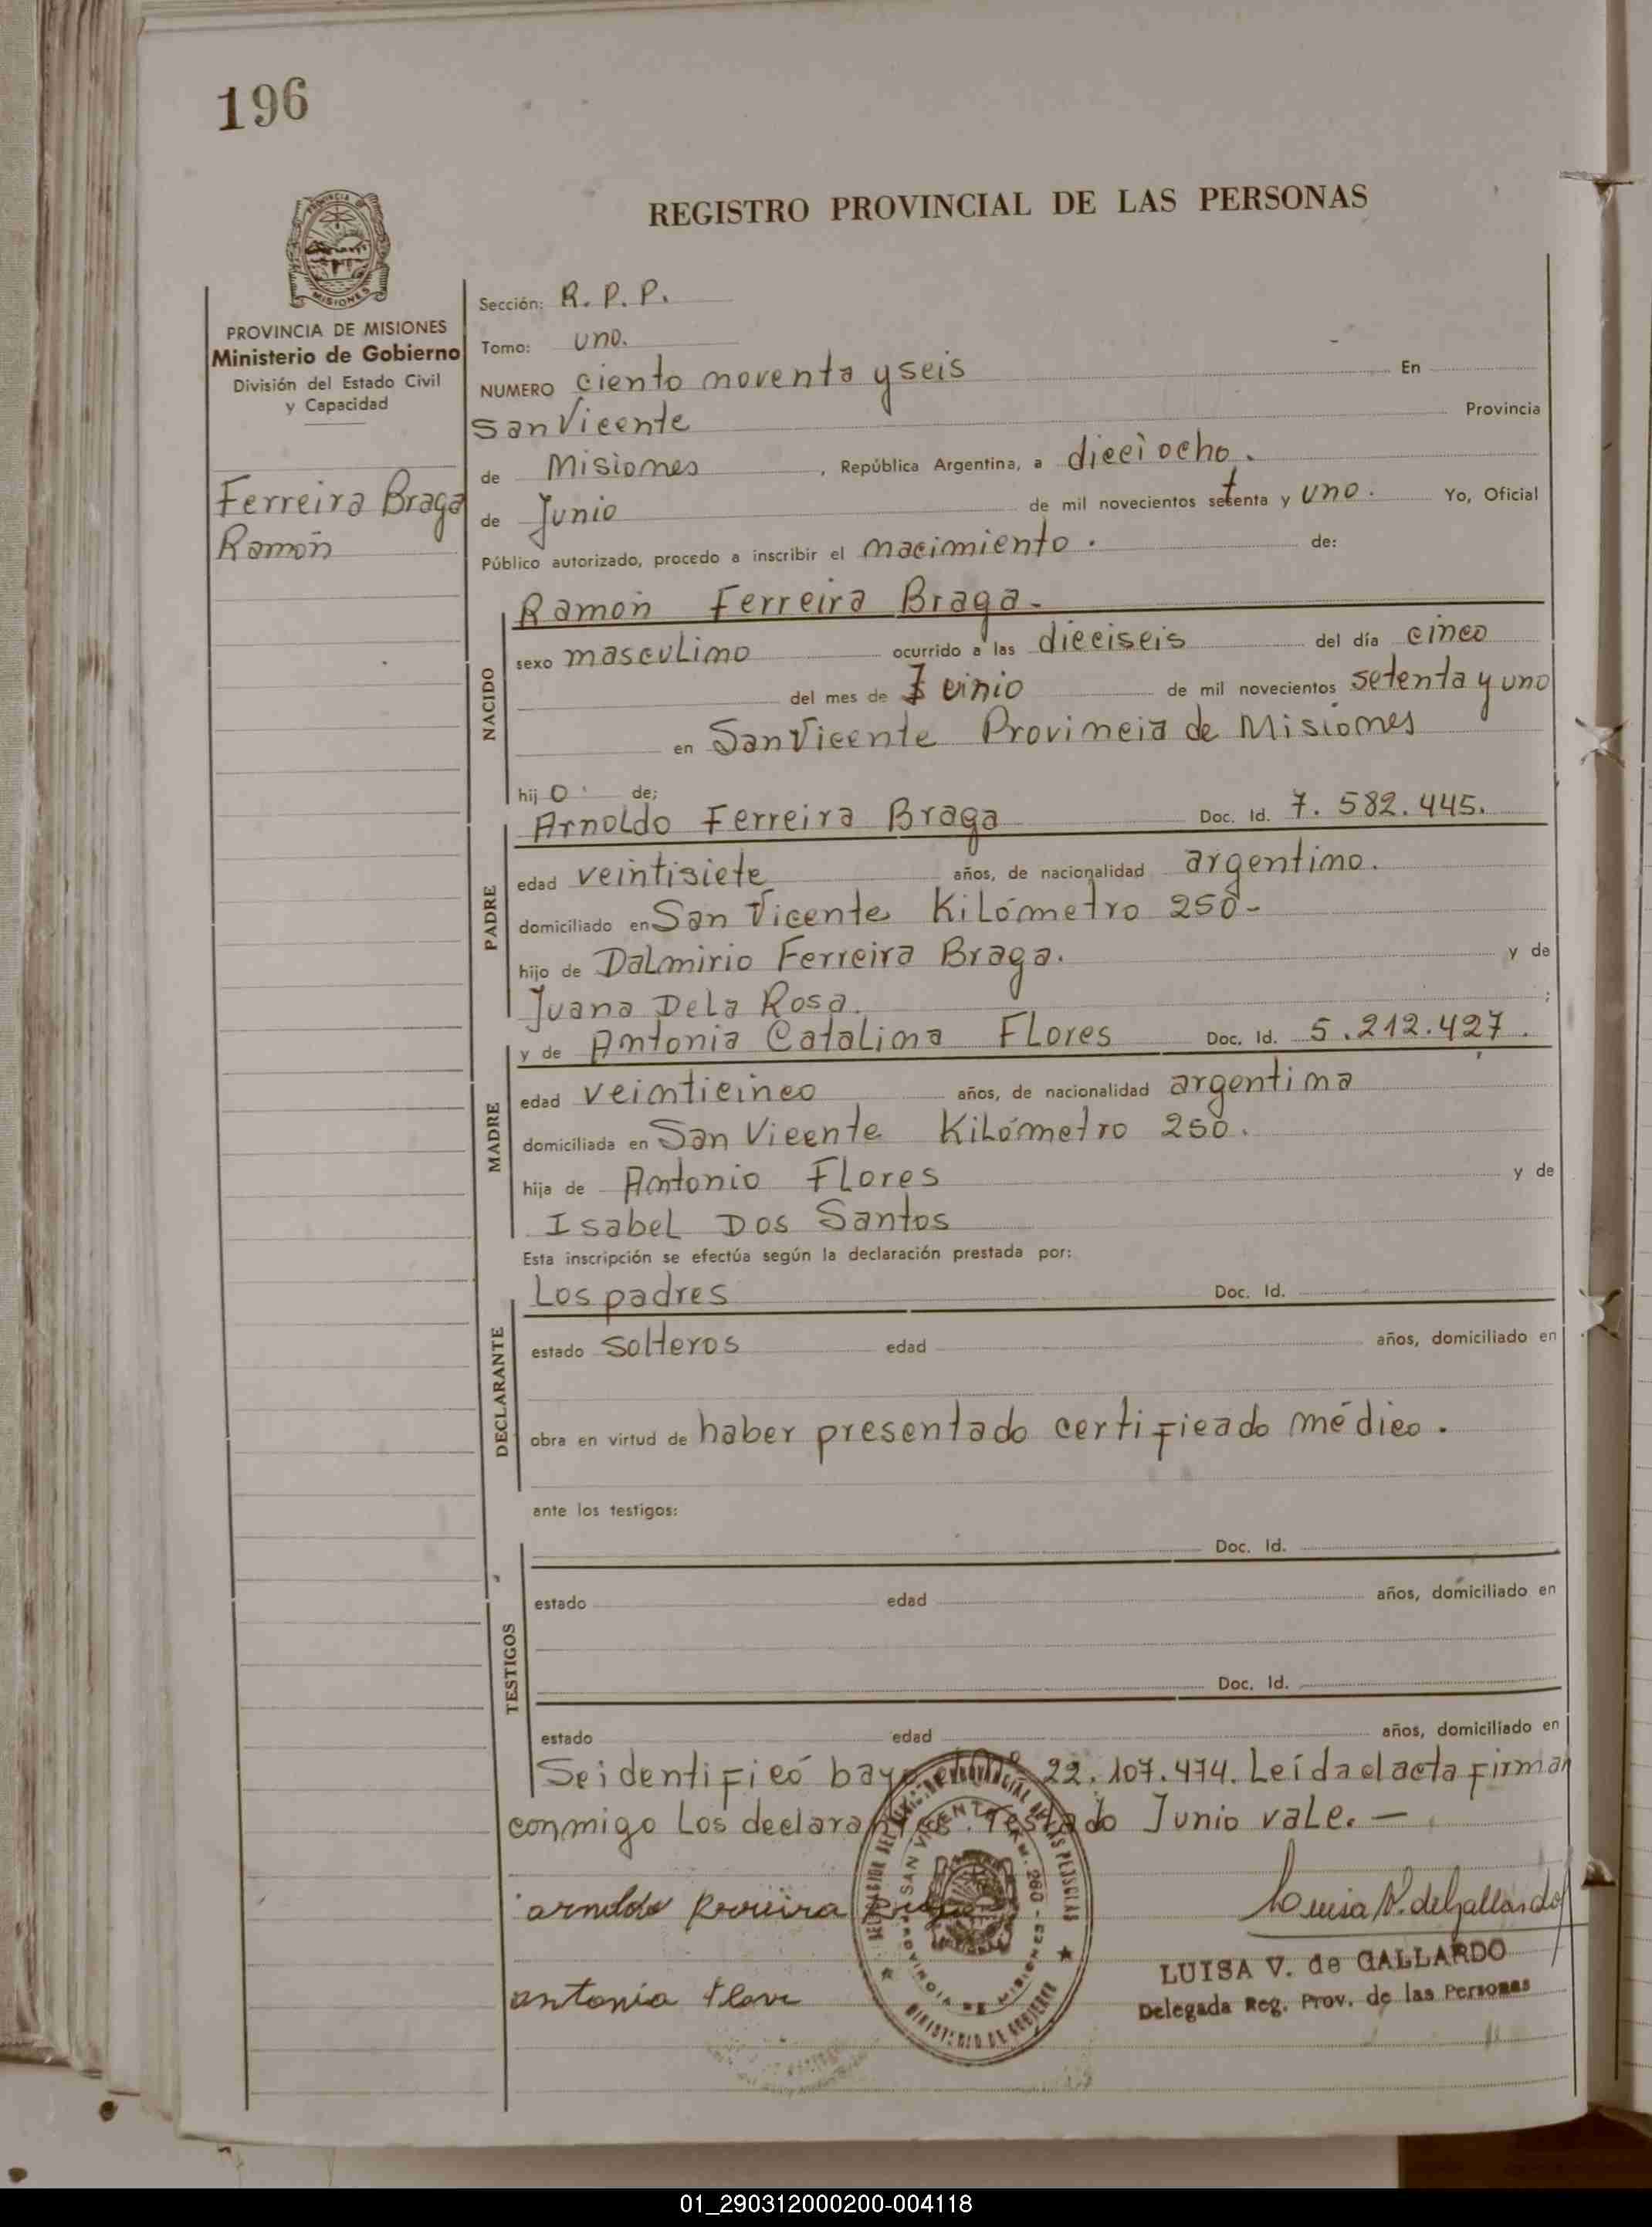 196
REGISTRO PROVINCIAL DE LAS PERSONAS
PROVINCIA DE
MISIONES
PROVINCIA DE MISIONES
Ministerio de Gobierno
División del Estado Civil
y Capacidad
Ferreira Braga
Ramón
Sección: R. P. P.
Tomo: uno.
NUMERO ciento noventa y seis En
San Vicente Provincia
de Misiones, República Argentina, a dieciocho.
de Junio de mil novecientos setenta y uno. Yo, Oficial
Público autorizado, procedo a inscribir el nacimiento. de:
NACIDO
Ramón Ferreira Braga.
sexo masculino ocurrido a las dieciseis del día cinco
del mes de Junio de mil novecientos setenta y uno
en San Vicente Provincia de Misiones
hijo de;
PADRE
Arnoldo Ferreira Braga Doc. Id. 7.582.445.
edad veintisiete años, de nacionalidad argentino.
domiciliado en San Vicente Kilómetro 250-
hijo de Dalmirio Ferreira Braga. y de
Juana De la Rosa. ;
MADRE
y de Antonia Catalina Flores Doc. Id. 5.212.427.
edad veinticinco años, de nacionalidad argentina
domiciliada en San Vicente Kilómetro 250.
hija de Antonio Flores y de
Isabel Dos Santos
Esta inscripción se efectúa según la declaración prestada por:
DECLARANTE
Los padres Doc. Id.
estado solteros edad años, domiciliado en
obra en virtud de haber presentado certificado médico.
ante los testigos:
TESTIGOS
Doc. Id.
estado edad años, domiciliado en
Doc. Id.
estado edad años, domiciliado en
Se identificó bayo 22.107.474. Leída el acta firman
conmigo Los declarantes. Testado Junio vale. —
arnoldo Ferreira Braga
Luisa V. de Gallardo
LUISA V. de GALLARDO
Delegada Reg. Prov. de las Personas
antonia Flore
SAN VICENTE
PROVINCIA DE MISIONES
MINISTERIO DE GOBIERNO
01_290312000200-004118